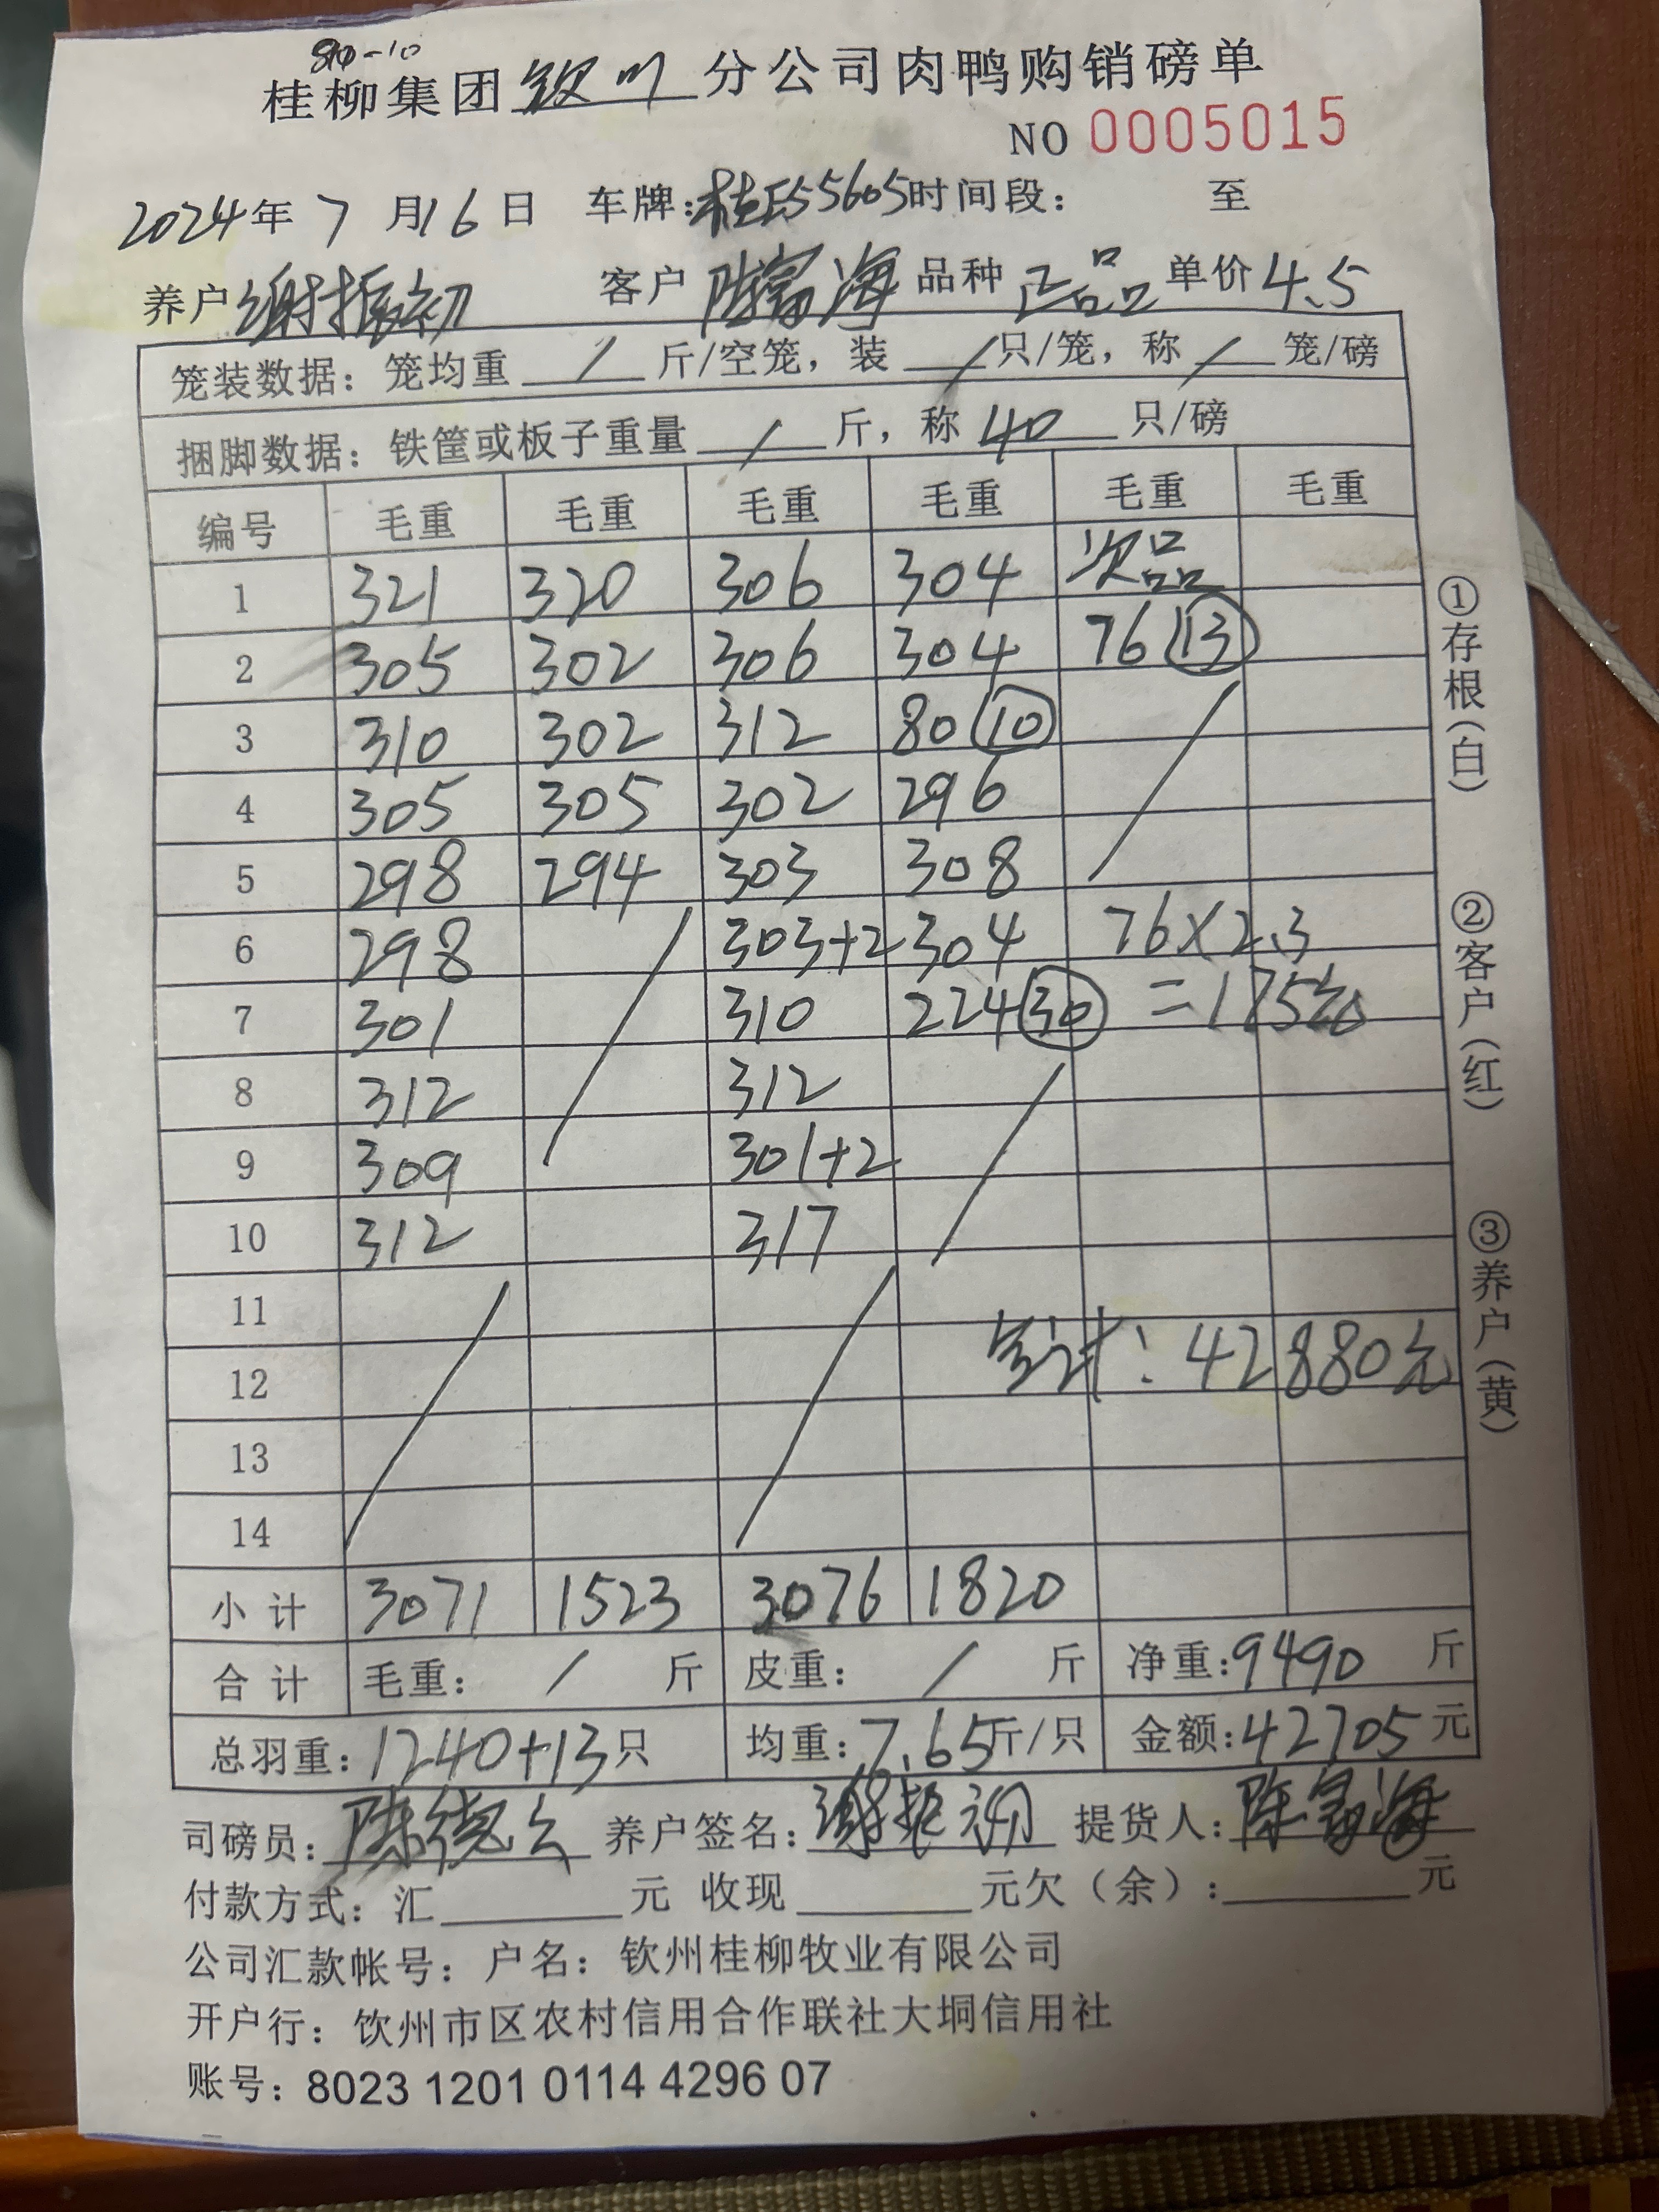 桂柳集团钦州分公司肉鸭购销磅单
NO 0005015
2024年 7 月16日 车牌:桂E55605时间段: 至
养户 谢振初 客户 陈富海 品种 正品 单价 4.5
笼装数据: 笼均重 / 斤/空笼, 装 / 只/笼, 称 / 笼/磅
捆脚数据: 铁筐或板子重量 / 斤, 称 40 只/磅
编号 毛重 毛重 毛重 毛重 毛重 毛重
1 321 320 306 304 次品
2 305 302 306 304 76 (13)
3 310 302 312 80 (10)
4 305 305 302 296
5 298 294 303 308
6 298 303+2 304 76×2.3
7 301 310 224 (30) =175元
8 312 312
9 309 301+2
10 312 317
11
12 总计: 42880元
13
14
小计 3071 1523 3076 1820
合计 毛重: / 斤 皮重: / 斤 净重:9490 斤
总羽重:1240+13只 均重:7.65斤/只 金额:42705元
司磅员: 陈德 养户签名: 谢振初 提货人: 陈富海
付款方式: 汇 元 收现 元欠(余): 元
公司汇款帐号: 户名: 钦州桂柳牧业有限公司
开户行: 饮州市区农村信用合作联社大垌信用社
账号: 8023 1201 0114 4296 07
①存根(白) ②客户(红) ③养户(黄)